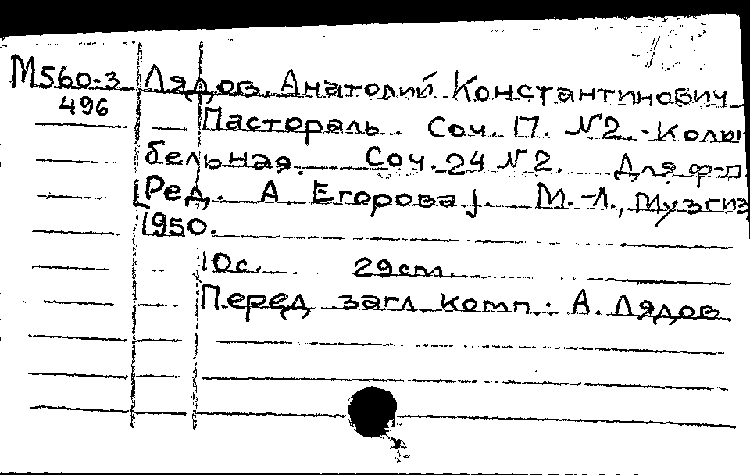 М560-3 Лядов, Анатолий Константинович
496 Пастораль. Соч. 17. №2. - Колы
бельная. Соч. 24 №2. Для ф-п.
[Ред. А. Егорова]. М.-Л., Музгиз
1950.
10с. 29cm.
Перед загл. комп.: А. Лядов